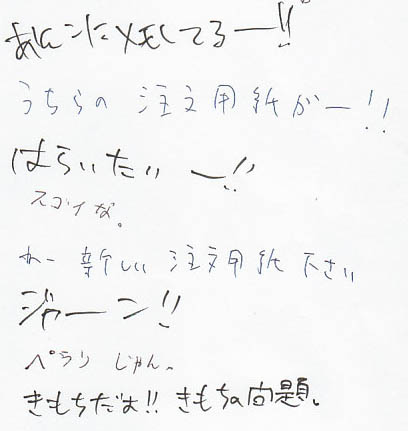 メモしてるー!!
うちらの 注文用紙がー!!
はらいたいー!!
スゴイな。
わー 新しい 注文用紙 下さい
ジャーン!!
ペラリ じゃん。
きもちだよ!! きもちの問題。